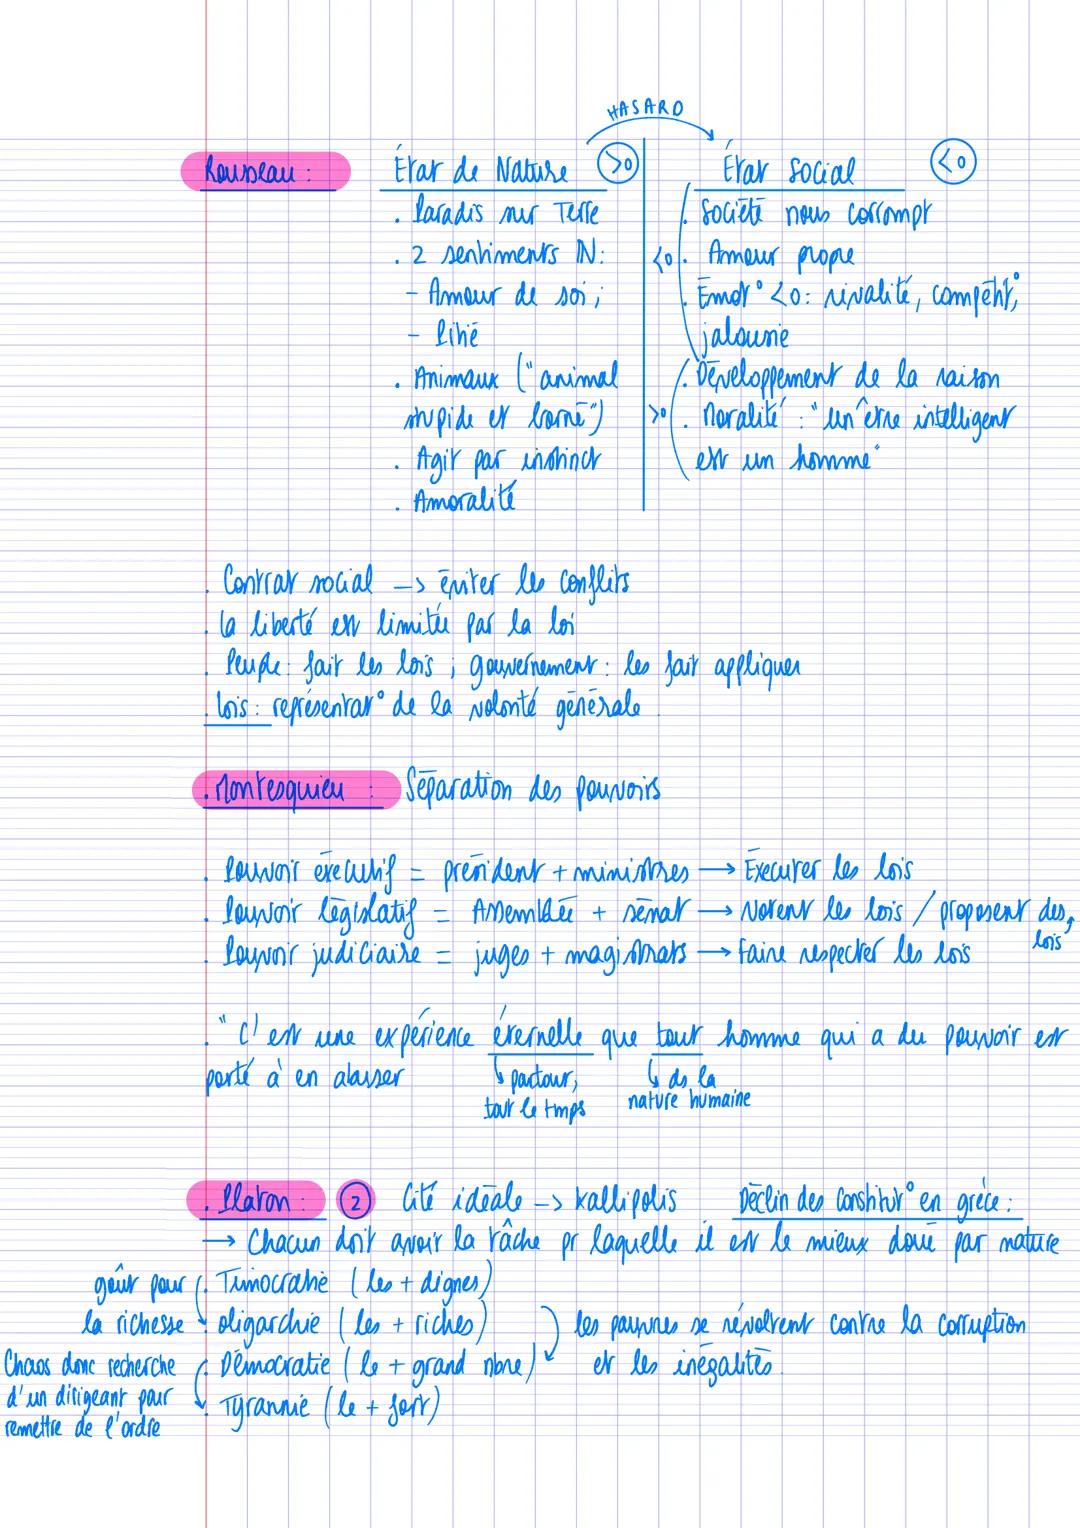 HASARD
Rousseau : État de Nature >0 État social <0
. Paradis sur Terre
. 2 sentiments IN :
- Amour de soi ;
- Pitié
. Animaux ("animal
stupide et borné")
. Agit par instinct
. Amoralité
<0 . Société nous corrompt
. Amour propre
. Émot° <0 : rivalité, compétit°,
jalousie
>0 . Développement de la raison
. Moralité : "un être intelligent
est un homme"
. Contrat social -> éviter les conflits
. La liberté est limitée par la loi
. Peuple : fait les lois ; gouvernement : les fait appliquer
. Lois : représentat° de la volonté générale.
. Montesquieu : Séparation des pouvoirs
. Pouvoir éxecutif = président + ministres → Éxecuter les lois
. Pouvoir législatif = Assemblée + sénat → Votent les lois / proposent des
lois
. Pouvoir judiciaire = juges + magistrats → Faire respecter les lois
. "C'est une expérience éternelle que tout homme qui a du pouvoir est
porté à en abuser
↳ partout, ↳ ds la
tout le tmps nature humaine
. Platon : 2 Cité idéale -> Kallipolis Déclin des constitut° en grèce :
→ Chacun doit avoir la tâche pr laquelle il est le mieux doué par nature
goût pour . Timocratie (les + dignes)
la richesse . oligarchie (les + riches) les pauvres se révoltent contre la corruption
Chaos donc recherche . Démocratie (le + grand nbre) et les inégalités.
d'un dirigeant pour . Tyrannie (le + fort)
remettre de l'ordre